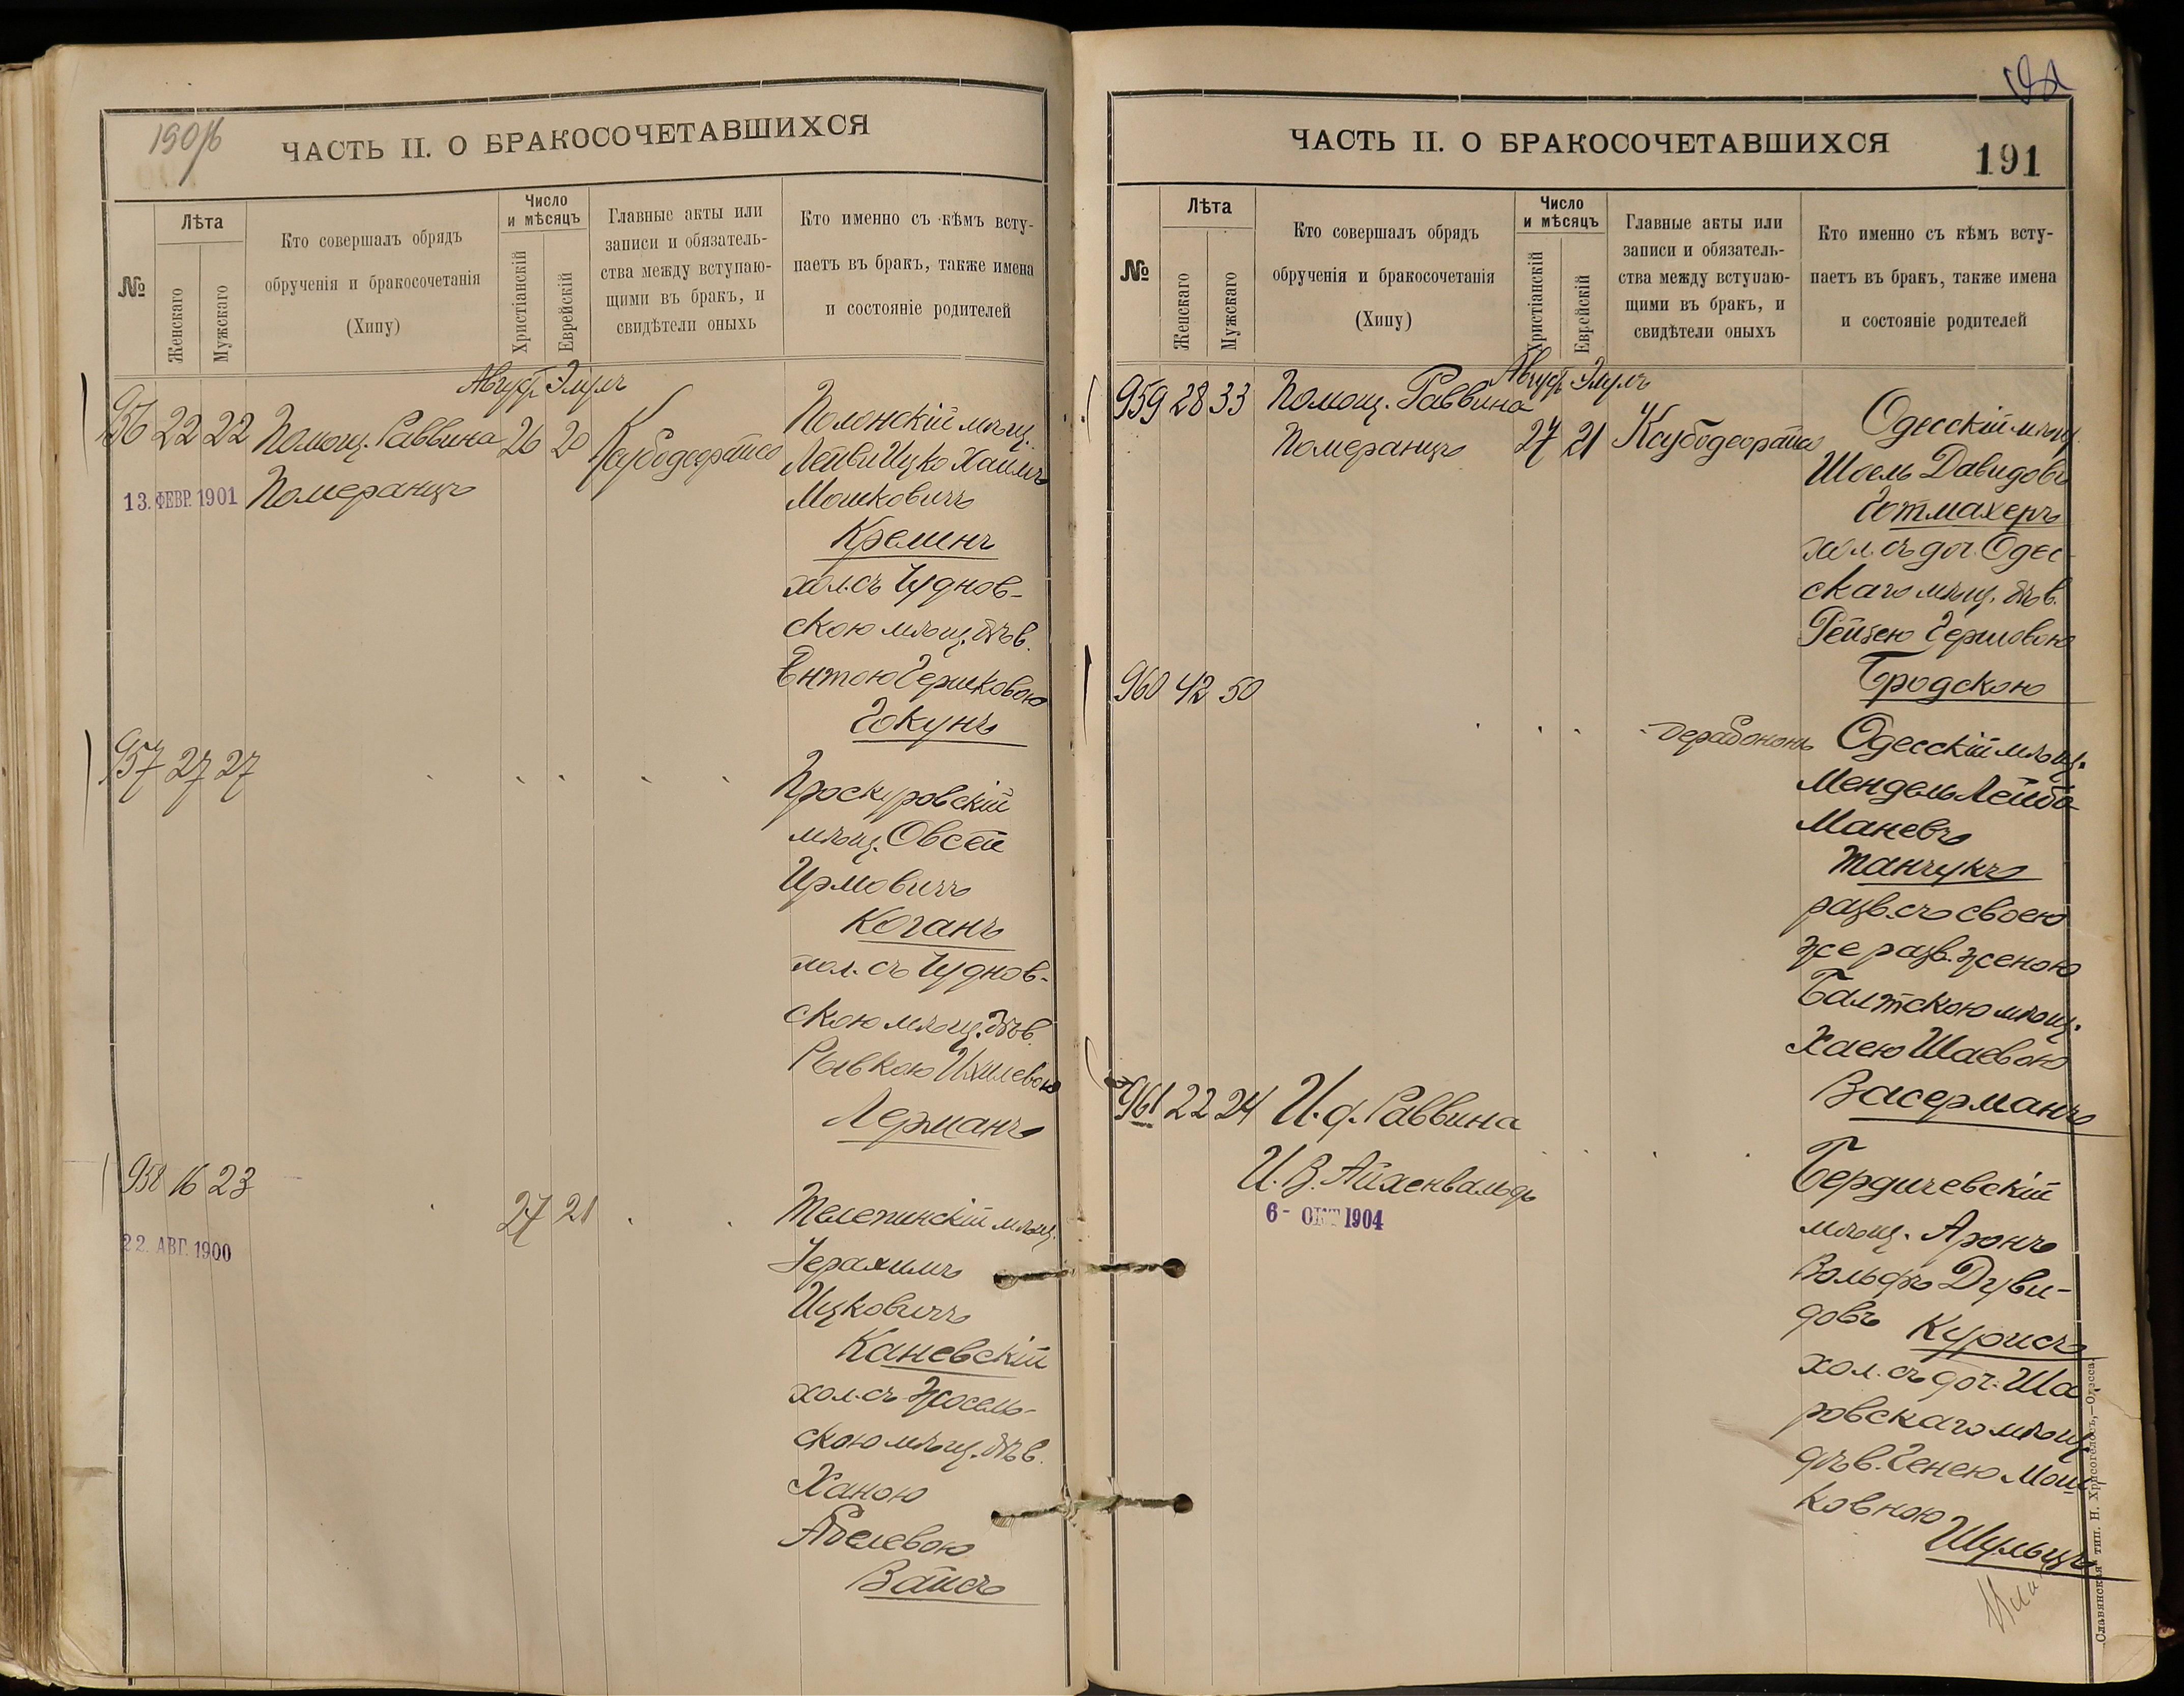 190/б
ЧАСТЬ II. О БРАКОСОЧЕТАВШИХСЯ
№
Лѣта
Женскаго
Мужскаго
Кто совершалъ обрядъ
обрученія и бракосочетанія
(Хипу)
Число
и мѣсяцъ
Христіанскій
Еврейскій
Главные акты или
записи и обязатель-
ства между вступаю-
щими въ бракъ, и
свидѣтели оныхъ
Кто именно съ кѣмъ всту-
паетъ въ бракъ, также имена
и состояніе родителей
Августъ Элулъ
956 22 22 Помощ. Раввина 26 20 Ксубодеорайсо
Померанцъ
13. ФЕВР. 1901
Полонскій мѣщ.
Лейви Ицко Хаимъ
Мошковичъ
Креминъ
хол. съ Чуднов-
скою мѣщ. дѣв.
Ентою Гершковою
Гокунъ
957 27 27
Проскуровскій
мѣщ. Овсей
Ирмовичъ
Коганъ
хол. съ Чуднов-
скою мѣщ. дѣв.
Рывкою Ихилевою
Лерманъ
958 16 23 27 21
22. АВГ. 1900
Телепинскій мѣщ.
Ицковичъ
Каневскій
хол. съ
скою мѣщ. дѣв.
Ханою
Абелевою
Вайсъ
191
ЧАСТЬ II. О БРАКОСОЧЕТАВШИХСЯ
№
Лѣта
Женскаго
Мужскаго
Кто совершалъ обрядъ
обрученія и бракосочетанія
(Хипу)
Число
и мѣсяцъ
Христіанскій
Еврейскій
Главные акты или
записи и обязатель-
ства между вступаю-
щими въ бракъ, и
свидѣтели оныхъ
Кто именно съ кѣмъ всту-
паетъ въ бракъ, также имена
и состояніе родителей
Августъ Элулъ
959 28 33 Помощ. Раввина
Померанцъ 27 21 Ксубодеорайсо
Одесскій мѣщ.
Шоель Давидовъ
Гутмахеръ
хол. съ доч. Одес-
скаго мѣщ. дѣв.
Рейзею Гершовою
Бродскою
960 42 50
дерабононъ
Одесскій мѣщ.
Мендель Лейба
Маневъ
Танчукъ
разв. съ своею
же разв. женою
Балтскою мѣщ.
Хаею Шаевою
Васерманъ
961 22 24 И. д. Раввина
И. В. Айхенвальдъ
6- ОКТ 1904
Бердичевскій
мѣщ. Аронъ
Вольфъ Дуви-
довъ Курисъ
хол. съ доч. Ша-
ровскаго мѣщ.
дѣв. Генею Мош-
ковною
Шульцъ
Славянская тип. Н. Хрисогелосъ,—Одесса.